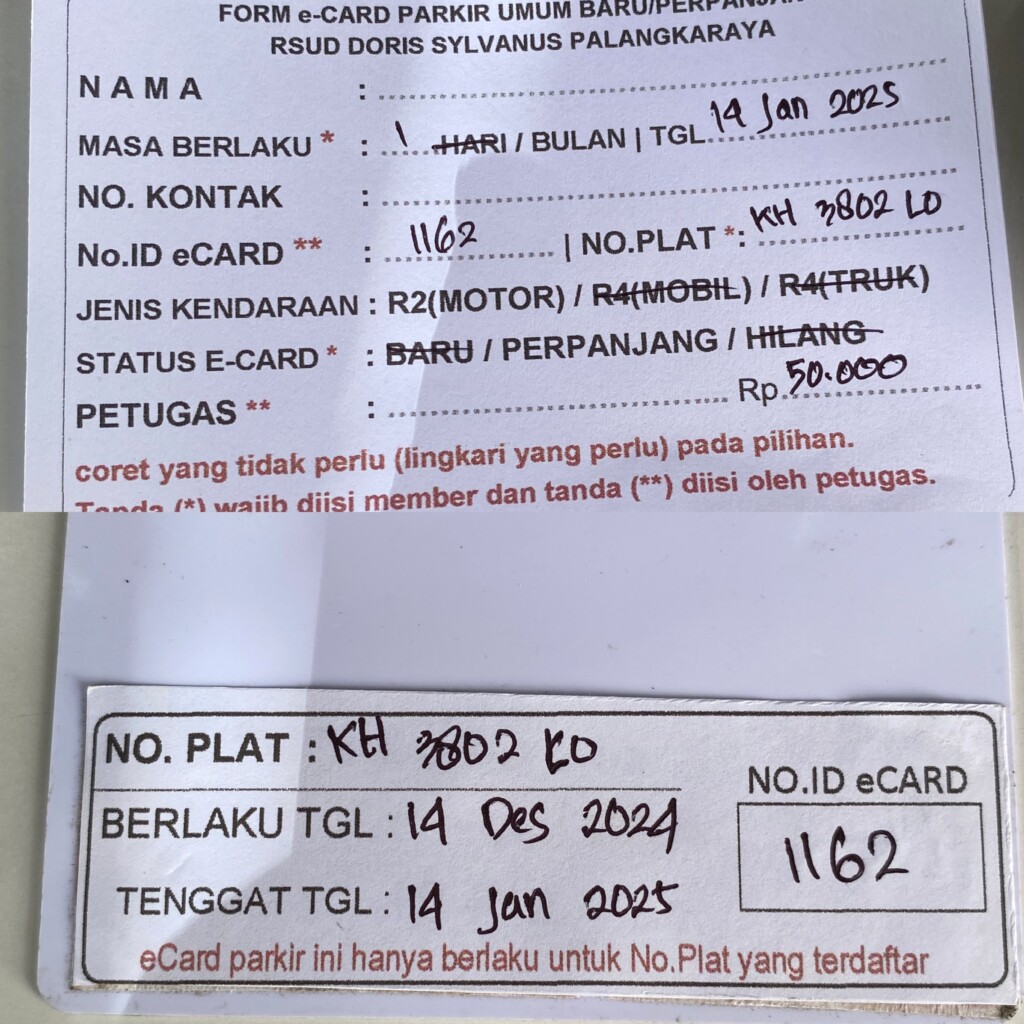 FORM e-CARD PARKIR UMUM BARU/PERPANJAN
RSUD DORIS SYLVANUS PALANGKARAYA
NAMA :
MASA BERLAKU * : 1 HARI / BULAN | TGL. 14 Jan 2025
NO. KONTAK :
No.ID eCARD ** : 1162 | NO.PLAT *: KH 3802 LO
JENIS KENDARAAN : R2(MOTOR) / R4(MOBIL) / R4(TRUK)
STATUS E-CARD * : BARU / PERPANJANG / HILANG
PETUGAS ** : Rp. 50.000
coret yang tidak perlu (lingkari yang perlu) pada pilihan.
Tanda (*) wajib diisi member dan tanda (**) diisi oleh petugas.
NO. PLAT : KH 3802 LO
BERLAKU TGL : 14 Des 2024
TENGGAT TGL : 14 Jan 2025
NO.ID eCARD
1162
eCard parkir ini hanya berlaku untuk No.Plat yang terdaftar